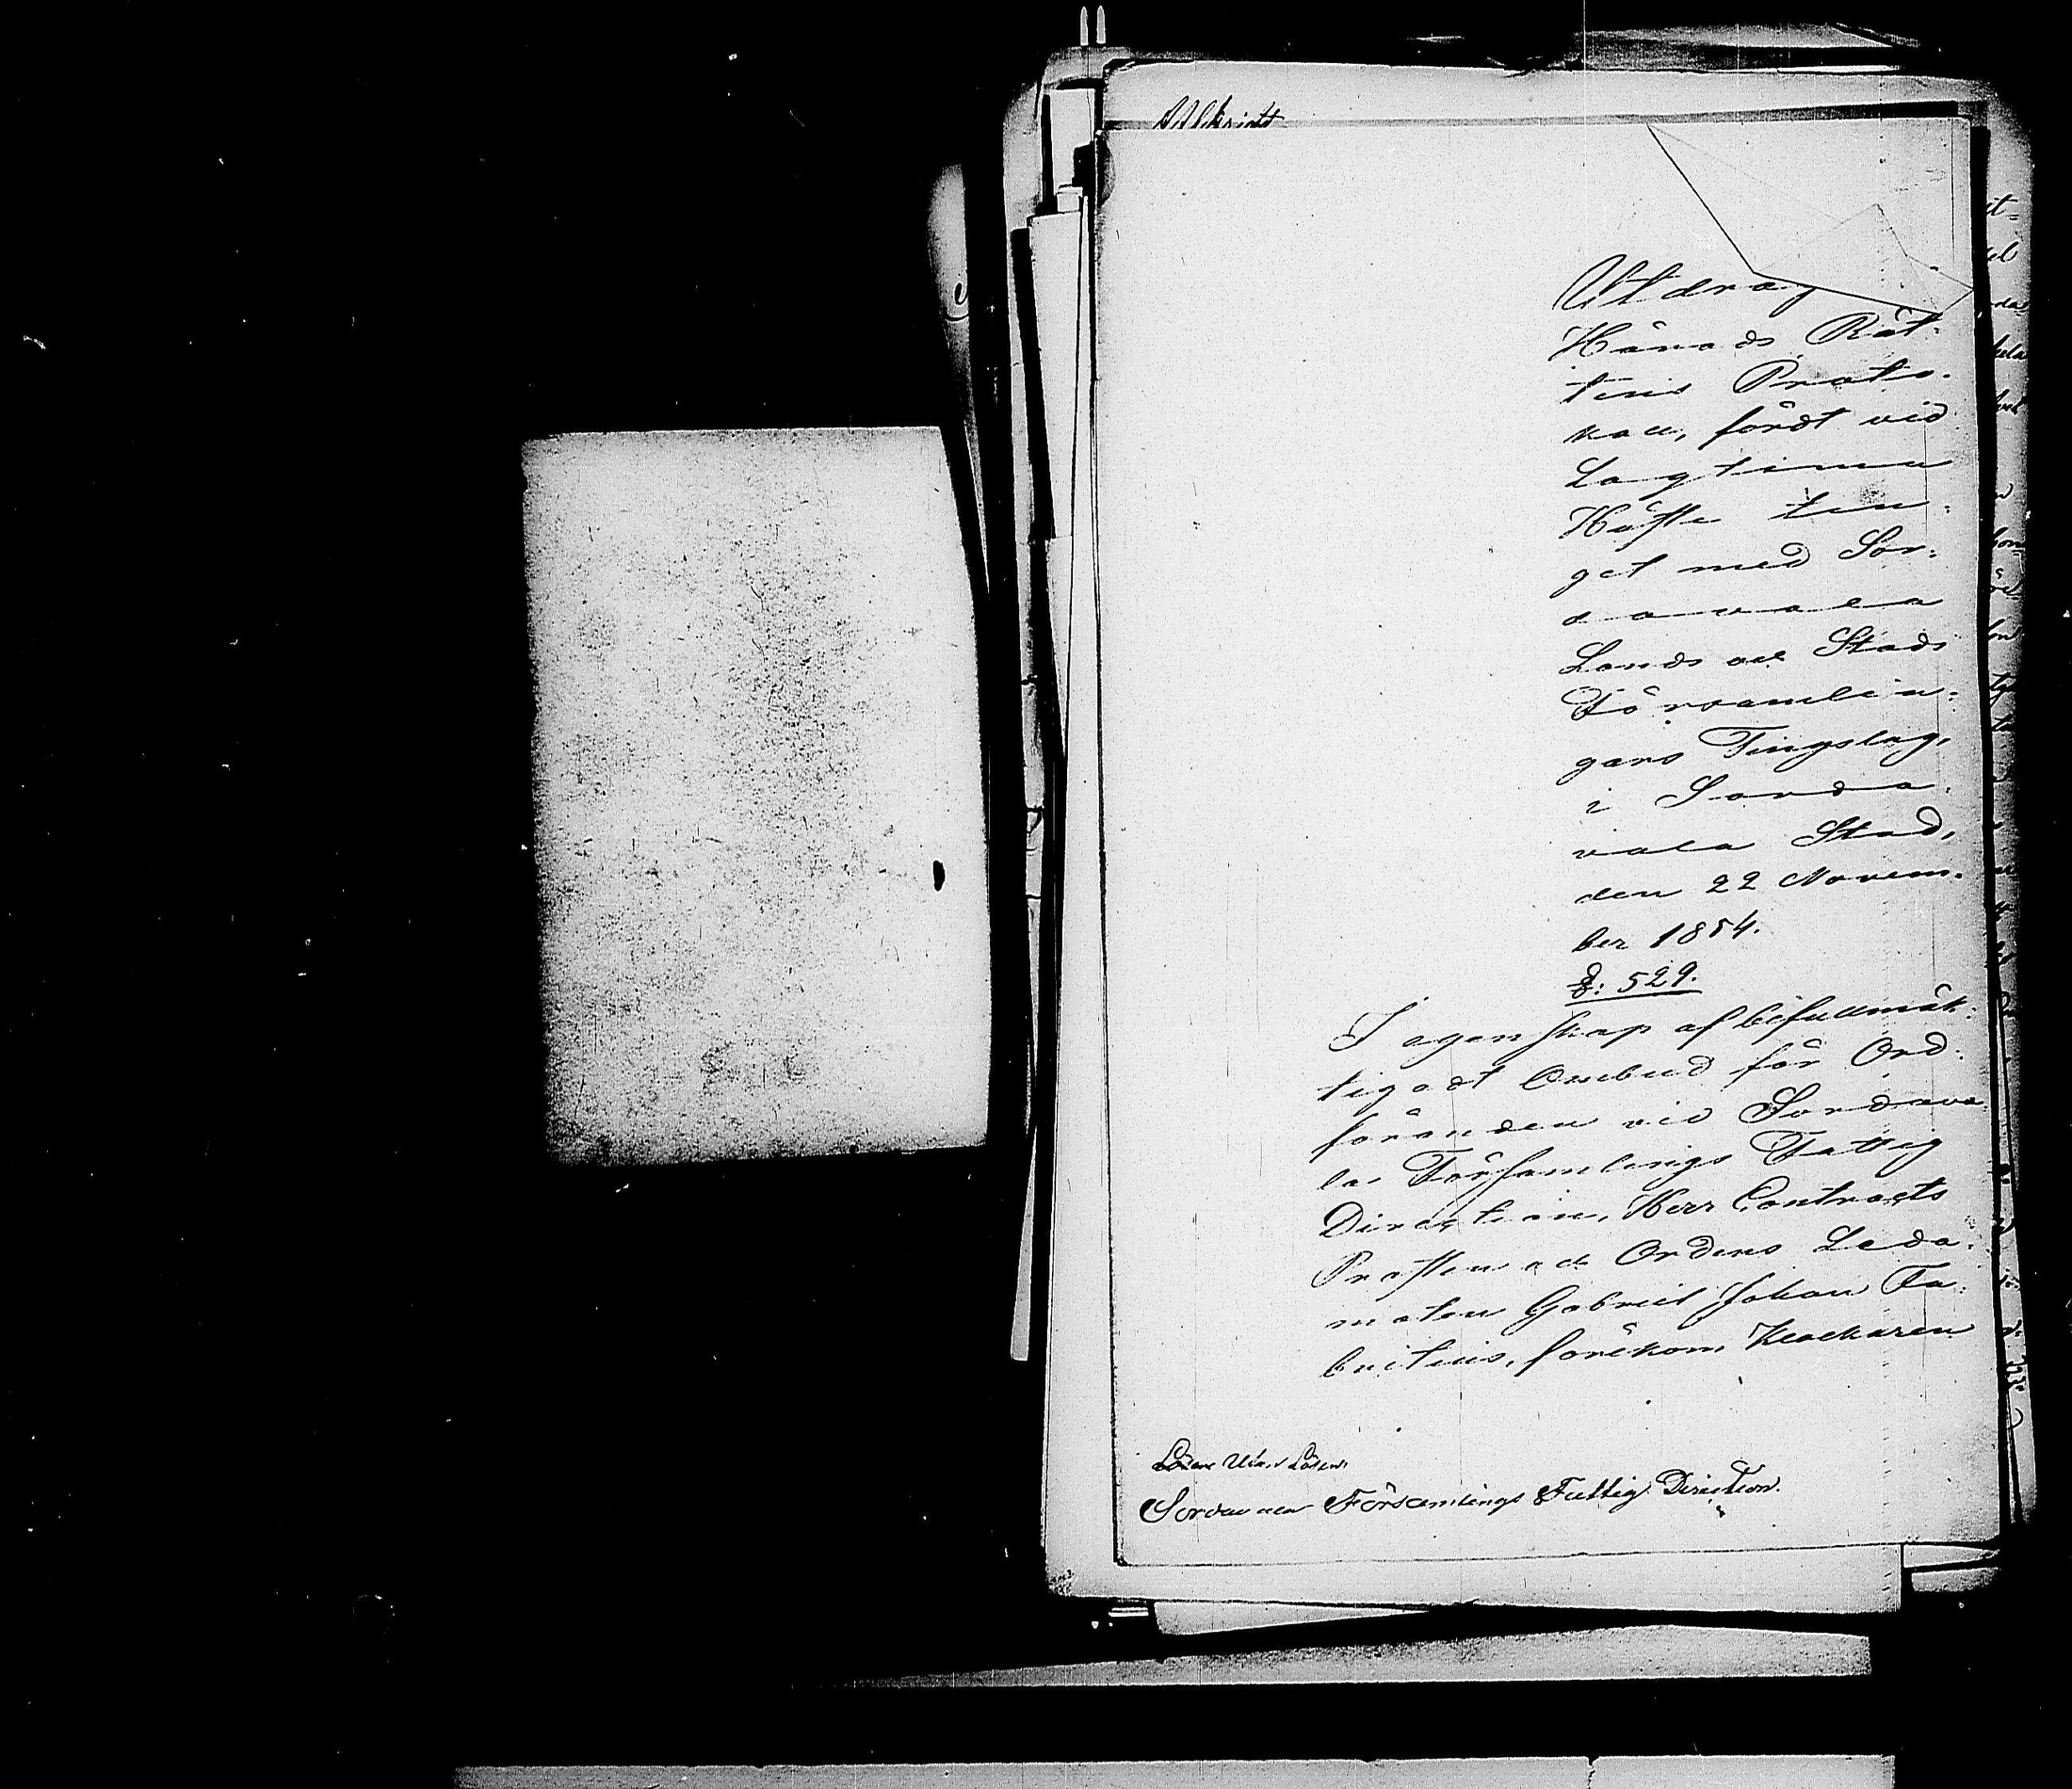 Afskrift
Utdrag
Härads Rät-
tens Proto-
koll, fördt vid
Lagtima
Höste tin-
get med Sor-
davala
Lands och Stads
Församlin-
gars Tingslag,
i Sorda-
vala Stad,
den 22 Novem-
ber 1854.
§: 529.
I egenskap af befullmäk-
tigadt Ombud för Ord-
föranden vid Sordava-
la Församlings Fattig
Direction, Herr Contracts
Prosten och Ordens Leda-
moten Gabriel Johan Fa-
britius, förekom Klockaren
Lösen Utan Lösen.
Sordavala Församlings Fattig Direction.